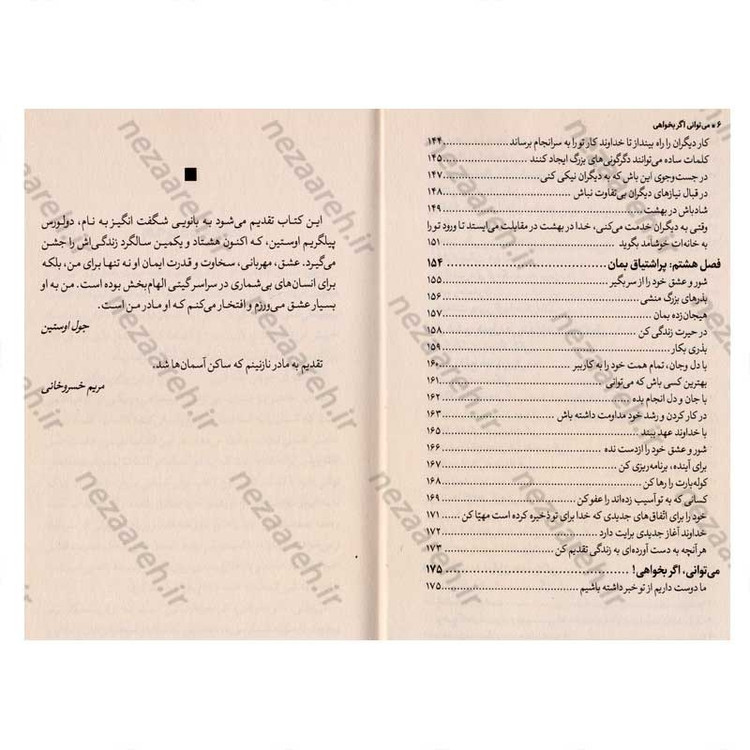 ۶ ■ می‌توانی اگر بخواهی
کار دیگران را راه بینداز تا خداوند کار تو را به سرانجام برساند ........ ۱۴۴
کلمات ساده می‌توانند دگرگونی‌های بزرگ ایجاد کنند ........ ۱۴۵
در جست‌وجوی این باش که به دیگران نیکی کنی ........ ۱۴۷
در قبال نیازهای دیگران بی‌تفاوت نباش ........ ۱۴۸
شادباش در بهشت ........ ۱۴۹
وقتی به دیگران خدمت می‌کنی، خدا در بهشت در مقابلت می‌ایستد تا ورود تو را
به خانه‌ات خوشامد بگوید ........ ۱۵۱
فصل هشتم: پراشتیاق بمان ........ ۱۵۴
شور و عشق خود را از سر بگیر ........ ۱۵۵
بذرهای بزرگ منشی ........ ۱۵۶
هیجان‌زده بمان ........ ۱۵۷
در حیرت زندگی کن ........ ۱۵۸
بذری بکار ........ ۱۵۹
با دل وجان، تمام همت خود را به کار ببر ........ ۱۶۰
بهترین کسی باش که می‌توانی ........ ۱۶۱
با جان و دل انجام بده ........ ۱۶۲
در کار کردن و رشد خود مداومت داشته باش ........ ۱۶۳
با خداوند عهد ببند ........ ۱۶۵
شور و عشق خود را ازدست نده ........ ۱۶۶
برای آینده، برنامه‌ریزی کن ........ ۱۶۷
کوله‌بارت را رها کن ........ ۱۶۸
کسانی که به تو آسیب زده‌اند را عفو کن ........ ۱۶۹
خود را برای اتّفاق‌های جدیدی که خدا برای تو ذخیره کرده است مهیّا کن ........ ۱۷۱
خداوند آغاز جدیدی برایت دارد ........ ۱۷۲
هر آنچه به دست آورده‌ای به زندگی تقدیم کن ........ ۱۷۳
می‌توانی، اگر بخواهی! ........ ۱۷۵
ما دوست داریم از تو خبر داشته باشیم ........ ۱۷۵
این کتاب تقدیم می‌شود به بانویی شگفت انگیز به نام، دولورس
پیلگریم اوستین، که اکنون هشتاد و یکمین سالگرد زندگی‌اش را جشن
می‌گیرد. عشق، مهربانی، سخاوت و قدرت ایمان او نه تنها برای من، بلکه
برای انسان‌های بی‌شماری در سراسر گیتی الهام‌بخش بوده است. من به او
بسیار عشق می‌ورزم و افتخار می‌کنم که او مادر من است.
جول اوستین
تقدیم به مادر نازنینم که ساکن آسمان‌ها شد.
مریم خسروخانی
nezaareh.ir
nezaareh.ir
nezaareh.ir
nezaareh.ir
nezaareh.ir
nezaareh.ir
nezaareh.ir
nezaareh.ir
nezaareh.ir
nezaareh.ir